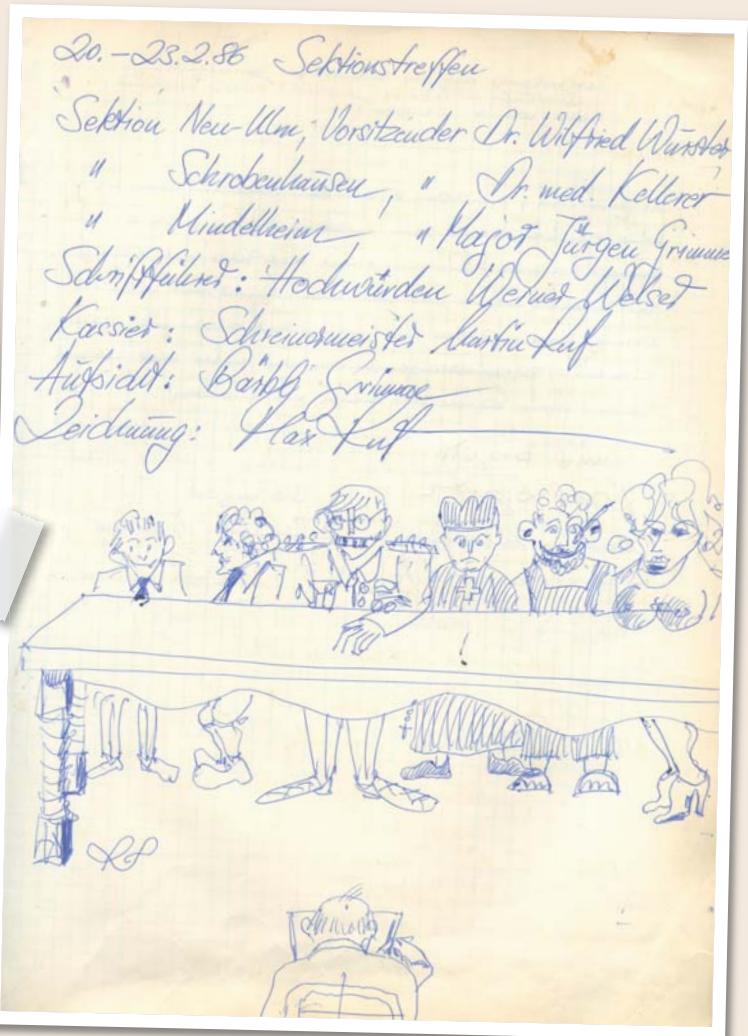 20.–23.2.86 Sektionstreffen
Sektion Neu-Ulm, Vorsitzender Dr. Wilfried Wurster
" Schrobenhausen, " Dr. med. Kellerer
" Mindelheim, " Major Jürgen Grimme
Schriftführer: Hochwürden Werner Welser
Kassier: Schreinermeister Martin Ruf
Aufsicht: Bärbl Grimme
Zeichnung: Max Ruf